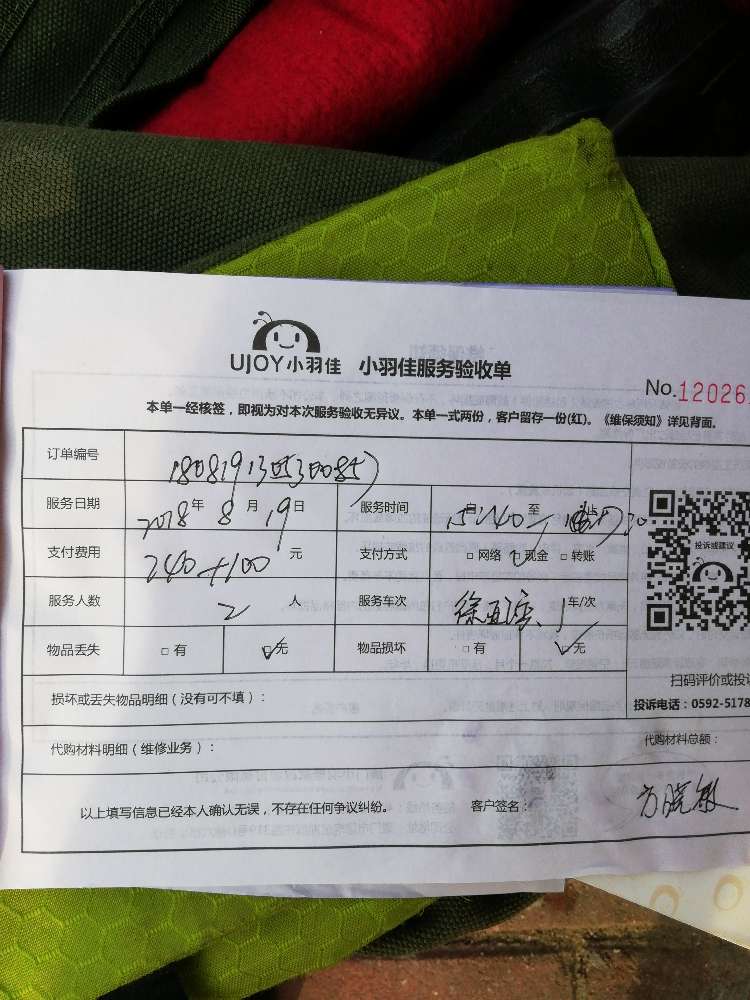 UJOY小羽佳 小羽佳服务验收单
No.12026
本单一经核签，即视为对本次服务验收无异议。本单一式两份，客户留存一份(红)。《维保须知》详见背面。
订单编号
服务日期 2018年 8月 19日 服务时间 自15:40至 止
支付费用 240+100 元 支付方式 □网络 ☑现金 □转账
服务人数 2 人 服务车次 1车/次
物品丢失 □有 ☑无 物品损坏 □有 ☑无
投诉或建议
扫码评价或投
投诉电话：0592-5178
损坏或丢失物品明细（没有可不填）：
代购材料明细（维修业务）： 代购材料总额：
以上填写信息已经本人确认无误，不存在任何争议纠纷。 客户签名： 方晓敏